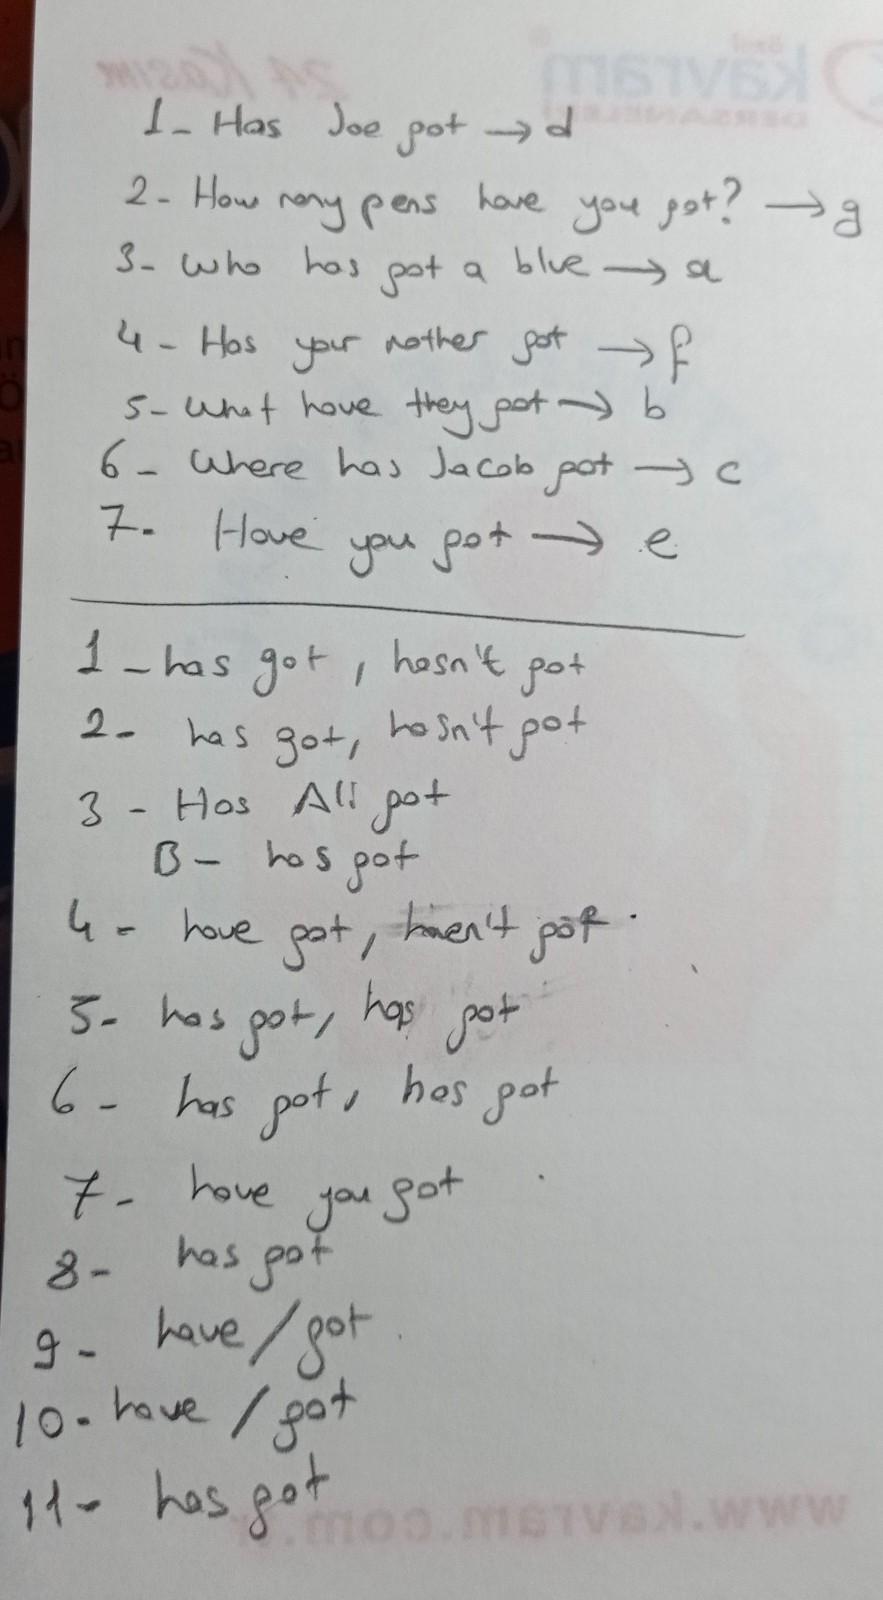 1- Has Joe got → d
2- How many pens have you got? → g
3- Who has got a blue → a
4- Has your mother got → f
5- What have they got → b
6- Where has Jacob got → c
7- Have you got → e
1- has got, hasn't got
2- has got, hasn't got
3- Has Ali got
B- has got
4- have got, haven't got
5- has got, has got
6- has got, has got
7- have you got
8- has got
9- have / got
10- have / got
11- has got